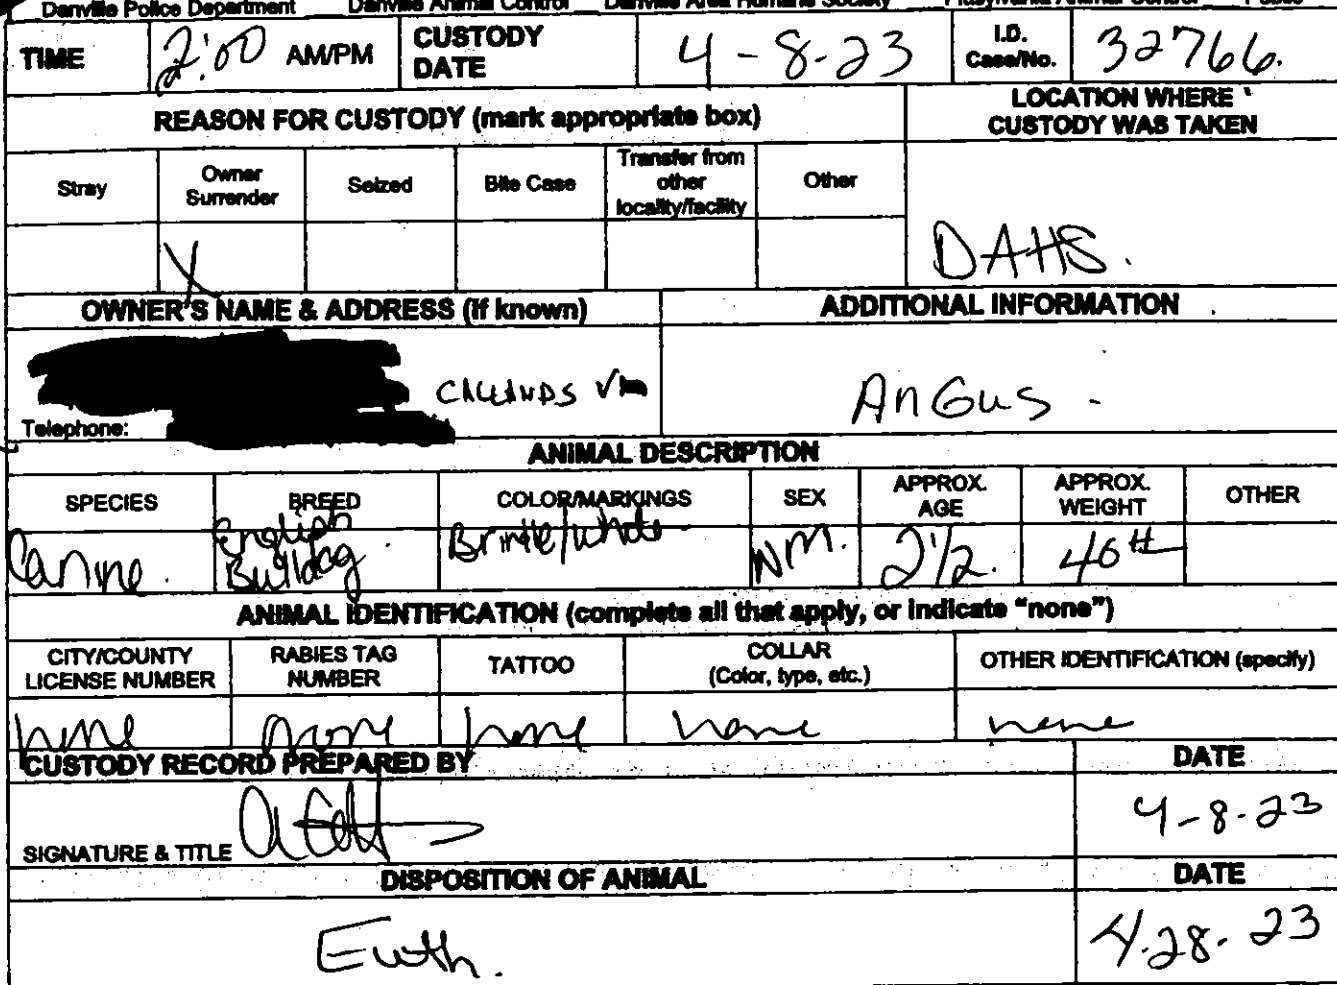 Danville Police Department Danville Animal Control Danville Area Humane Society Pittsylvania Animal Control Public
TIME 2:00 AM/PM CUSTODY DATE 4-8-23 I.D. Case/No. 32766.
REASON FOR CUSTODY (mark appropriate box) LOCATION WHERE CUSTODY WAS TAKEN
Stray Owner Surrender Seized Bite Case Transfer from other locality/facility Other
X DAHS.
OWNER'S NAME & ADDRESS (if known) ADDITIONAL INFORMATION
CALLANDS VA AnGus -
Telephone:
ANIMAL DESCRIPTION
SPECIES BREED COLOR/MARKINGS SEX APPROX. AGE APPROX. WEIGHT OTHER
Canine. English Bulldog Brindle/white NM. 2 1/2. 40#
ANIMAL IDENTIFICATION (complete all that apply, or indicate "none")
CITY/COUNTY LICENSE NUMBER RABIES TAG NUMBER TATTOO COLLAR (Color, type, etc.) OTHER IDENTIFICATION (specify)
none none none none none
CUSTODY RECORD PREPARED BY DATE
SIGNATURE & TITLE 4-8-23
DISPOSITION OF ANIMAL DATE
Euth. 4.28.23